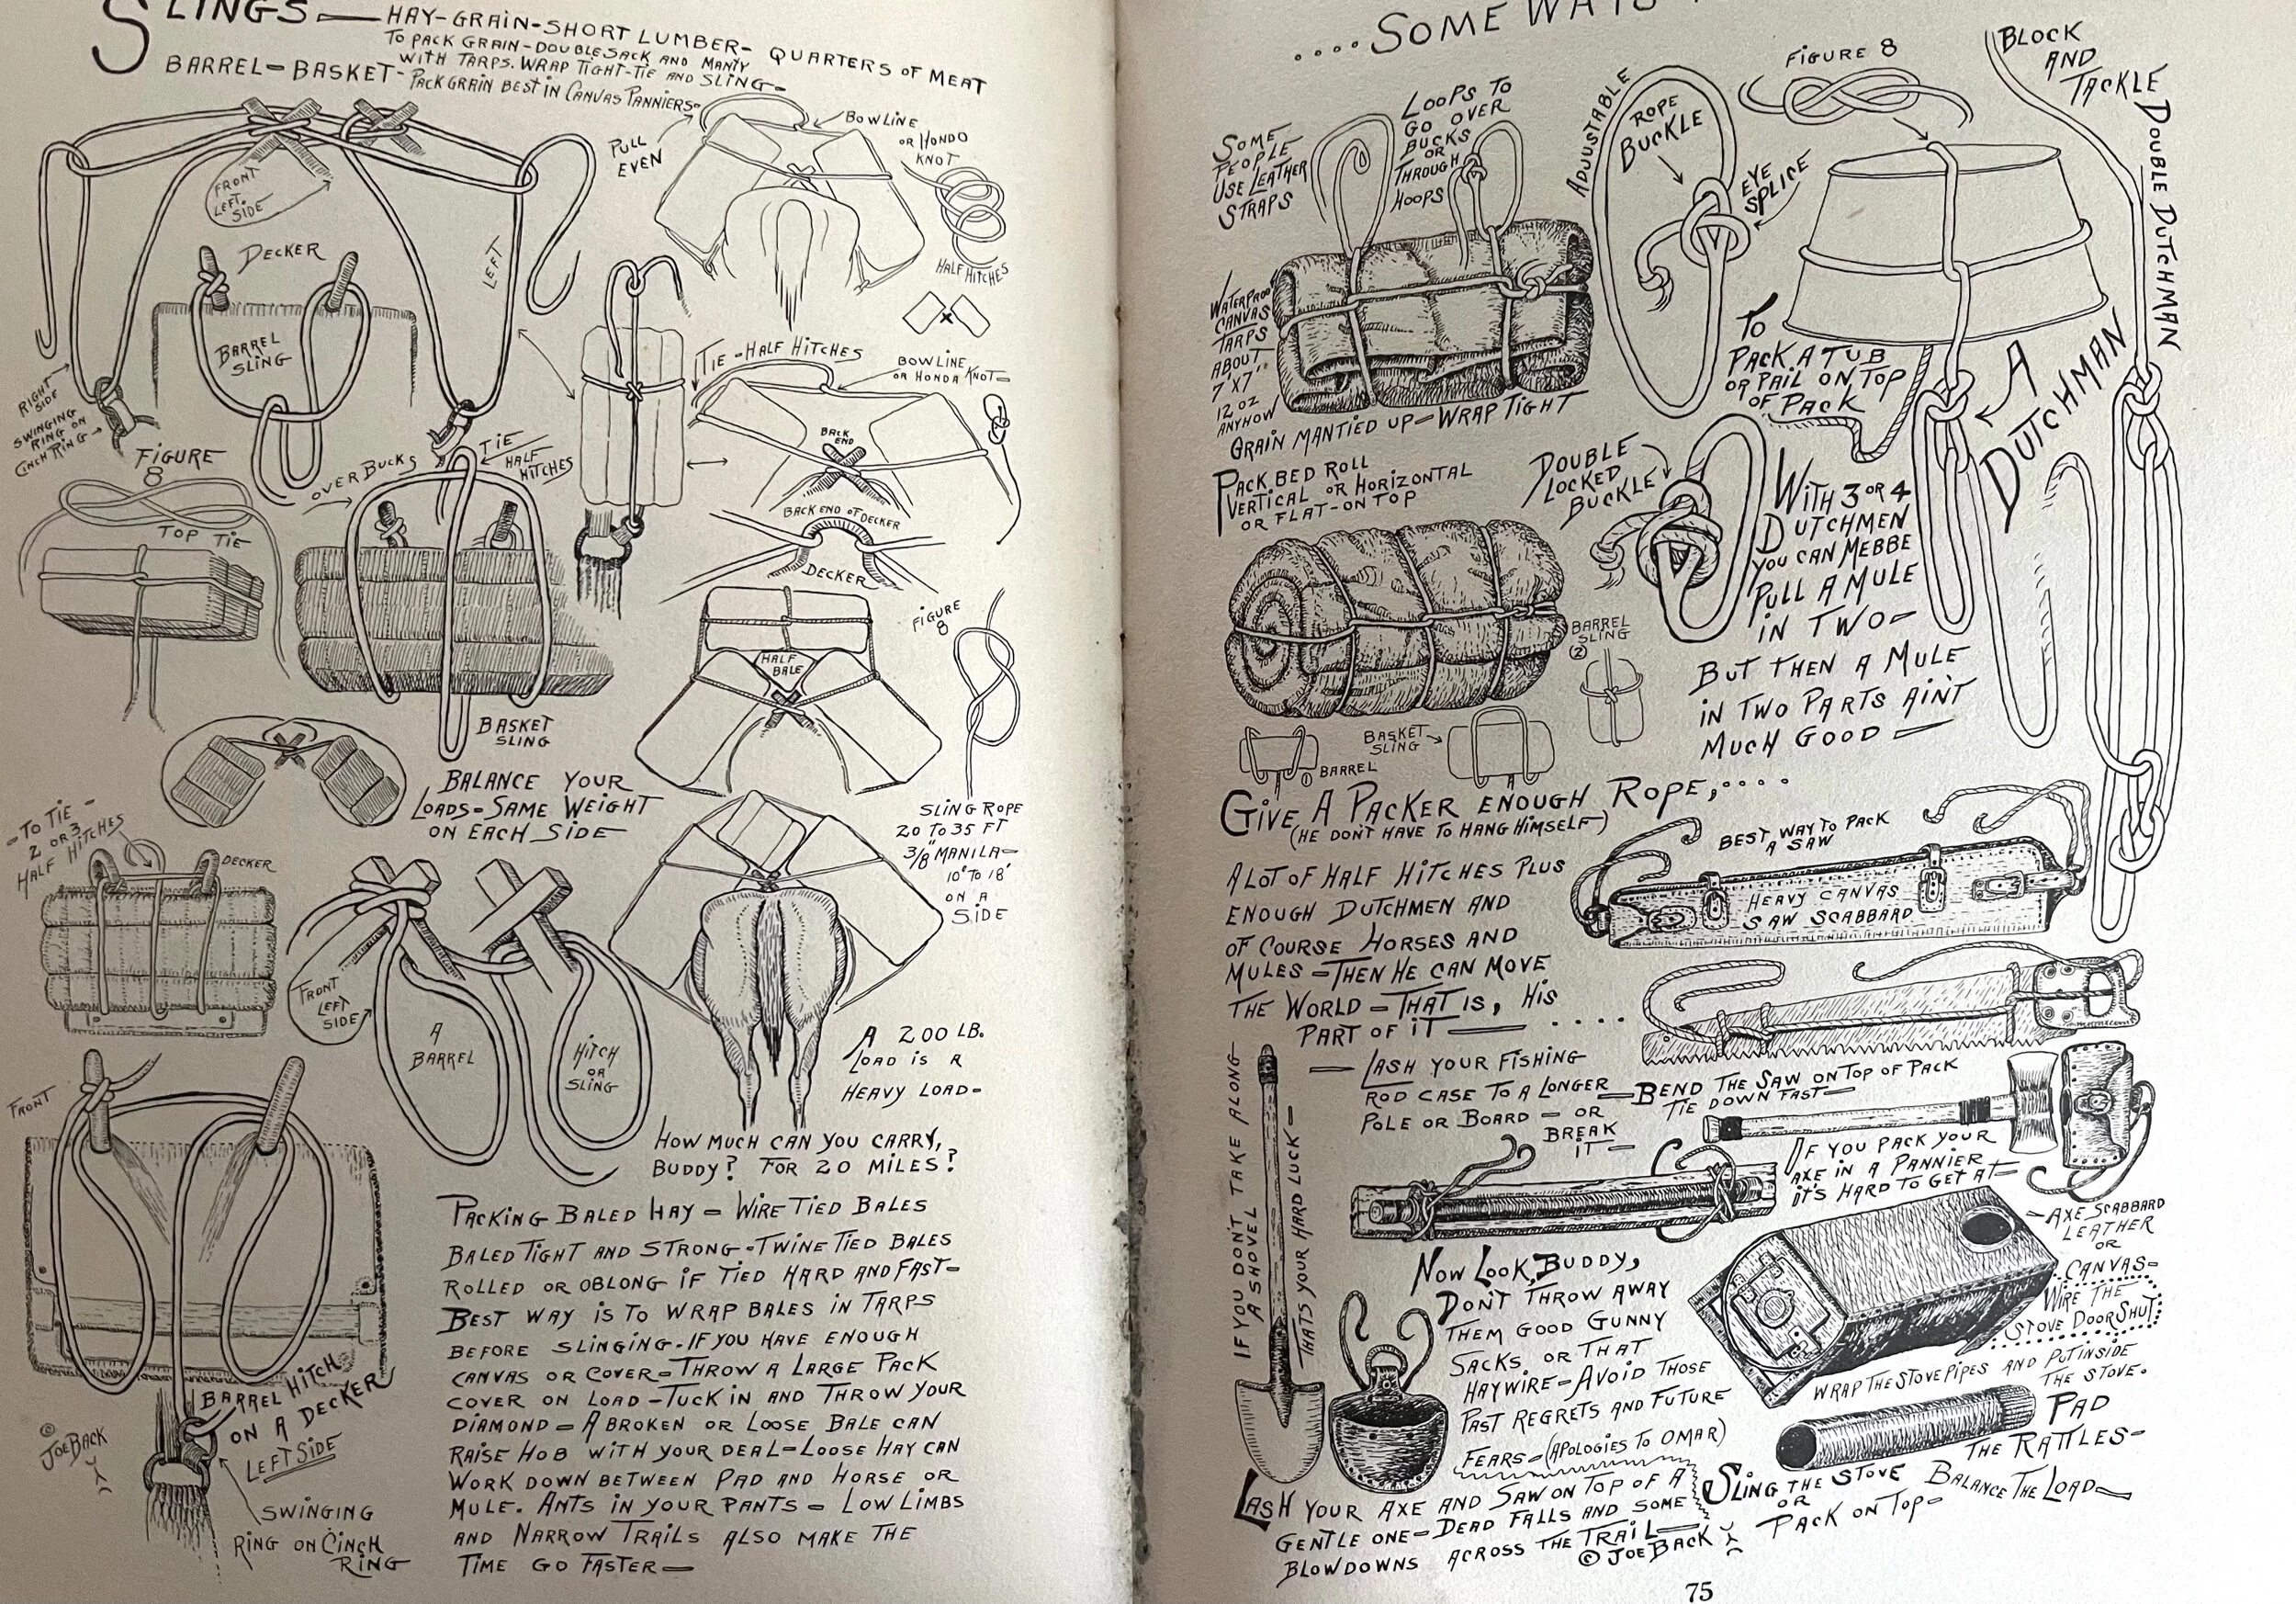 SLINGS — HAY-GRAIN-SHORT LUMBER- QUARTERS OF MEAT
TO PACK GRAIN-DOUBLE SACK AND MANTY
WITH TARPS. WRAP TIGHT-TIE AND SLING-
BARREL-BASKET-PACK GRAIN BEST IN CANVAS PANNIERS-
PULL
EVEN
BOWLINE
OR HONDO
KNOT
HALF HITCHES
FRONT
LEFT
SIDE
LEFT
DECKER
BARREL
SLING
RIGHT
SIDE
SWINGING
RING ON
CINCH RING
TIE-HALF HITCHES
BOWLINE
OR HONDA KNOT-
BACK
END
BACK END OF DECKER
DECKER
FIGURE
8
TOP TIE
OVER BUCKS
TIE
HALF
HITCHES
BASKET
SLING
HALF
BALE
FIGURE
8
BALANCE YOUR
LOADS-SAME WEIGHT
ON EACH SIDE
SLING ROPE
20 TO 35 FT
3/8" MANILA-
10' TO 18'
ON A
SIDE
-TO TIE-
2 OR 3
HALF HITCHES
DECKER
FRONT
LEFT
SIDE
A
BARREL
HITCH
OR
SLING
A 200 LB.
LOAD IS A
HEAVY LOAD-
HOW MUCH CAN YOU CARRY,
BUDDY? FOR 20 MILES?
FRONT
BARREL HITCH
ON A DECKER
LEFT SIDE
© JOE BACK
SWINGING
RING ON CINCH
RING
PACKING BALED HAY - WIRE TIED BALES
BALED TIGHT AND STRONG-TWINE TIED BALES
ROLLED OR OBLONG IF TIED HARD AND FAST-
BEST WAY IS TO WRAP BALES IN TARPS
BEFORE SLINGING-IF YOU HAVE ENOUGH
CANVAS OR COVER-THROW A LARGE PACK
COVER ON LOAD-TUCK IN AND THROW YOUR
DIAMOND-A BROKEN OR LOOSE BALE CAN
RAISE HOB WITH YOUR DEAL-LOOSE HAY CAN
WORK DOWN BETWEEN PAD AND HORSE OR
MULE. ANTS IN YOUR PANTS - LOW LIMBS
AND NARROW TRAILS ALSO MAKE THE
TIME GO FASTER-
....SOME WAYS
SOME
PEOPLE
USE LEATHER
STRAPS
LOOPS TO
GO OVER
BUCKS
OR
THROUGH
HOOPS
ADJUSTABLE
ROPE
BUCKLE
EYE
SPLICE
FIGURE 8
BLOCK
AND
TACKLE
DOUBLE DUTCHMAN
WATERPROOF
CANVAS
TARPS
ABOUT
7'X7'
12 OZ
ANYHOW
GRAIN MANTIED UP-WRAP TIGHT
TO
PACK A TUB
OR PAIL ON TOP
OF PACK
A
DUTCHMAN
PACK BED ROLL
VERTICAL OR HORIZONTAL
OR FLAT-ON TOP
DOUBLE
LOCKED
BUCKLE
WITH 3 OR 4
DUTCHMEN
YOU CAN MEBBE
PULL A MULE
IN TWO-
BUT THEN A MULE
IN TWO PARTS AINT
MUCH GOOD —
BARREL
SLING
②
① BARREL
BASKET
SLING
GIVE A PACKER ENOUGH ROPE,....
(HE DON'T HAVE TO HANG HIMSELF)
A LOT OF HALF HITCHES PLUS
ENOUGH DUTCHMEN AND
OF COURSE HORSES AND
MULES-THEN HE CAN MOVE
THE WORLD-THAT IS, HIS
PART OF IT — ....
BEST WAY TO PACK
A SAW
HEAVY CANVAS
SAW SCABBARD
- LASH YOUR FISHING
ROD CASE TO A LONGER
POLE OR BOARD - OR
BREAK
IT -
-BEND THE SAW ON TOP OF PACK
TIE DOWN FAST-
IF YOU DON'T TAKE ALONG
A SHOVEL
THAT'S YOUR HARD LUCK-
IF YOU PACK YOUR
AXE IN A PANNIER
IT'S HARD TO GET AT-
-AXE SCABBARD
LEATHER
OR
CANVAS-
NOW LOOK, BUDDY,
DON'T THROW AWAY
THEM GOOD GUNNY
SACKS, OR THAT
HAYWIRE-AVOID THOSE
PAST REGRETS AND FUTURE
FEARS-(APOLOGIES TO OMAR)
WIRE THE
STOVE DOOR SHUT
WRAP THE STOVE PIPES AND PUT INSIDE
THE STOVE.
PAD
THE RATTLES-
SLING THE STOVE BALANCE THE LOAD-
OR
PACK ON TOP-
LASH YOUR AXE AND SAW ON TOP OF A
GENTLE ONE-DEAD FALLS AND SOME
BLOWDOWNS ACROSS THE TRAIL-
© JOE BACK
75